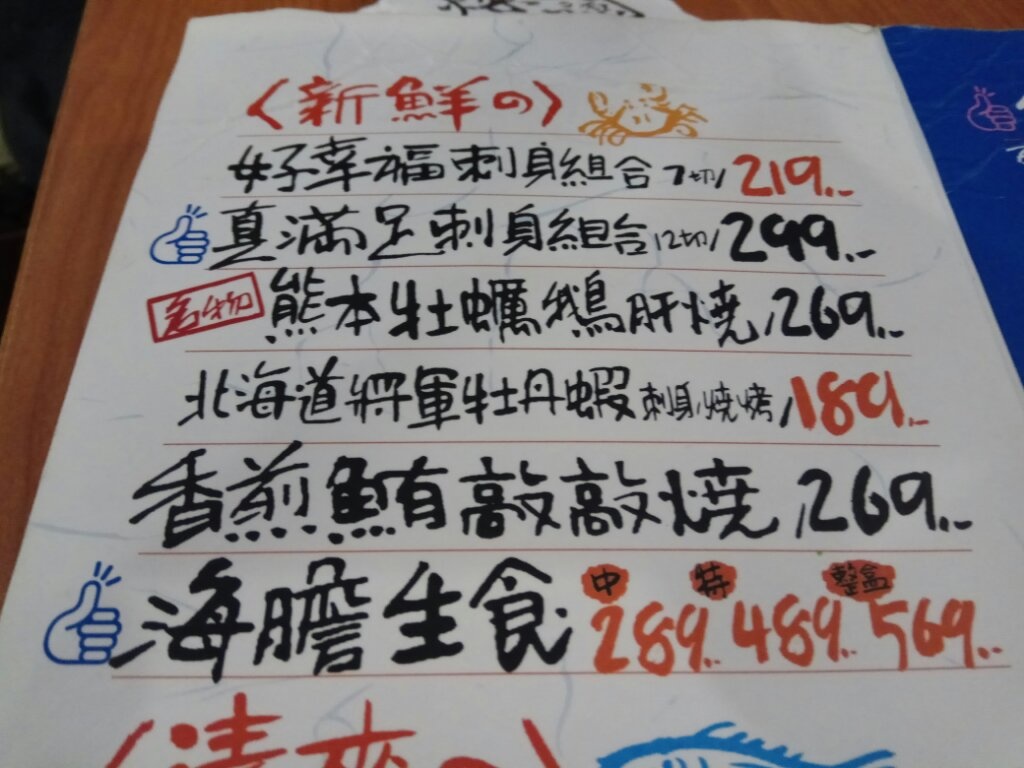 〈新鮮の〉
好幸福刺身組合 7切/219..-
真滿足刺身組合 12切/299..-
名物 熊本牡蠣鵝肝燒/269..-
北海道將軍牡丹蝦 刺身/燒烤/189..-
香煎鮪敲敲燒/269..-
海膽生食 中289..特489..整盒569..-